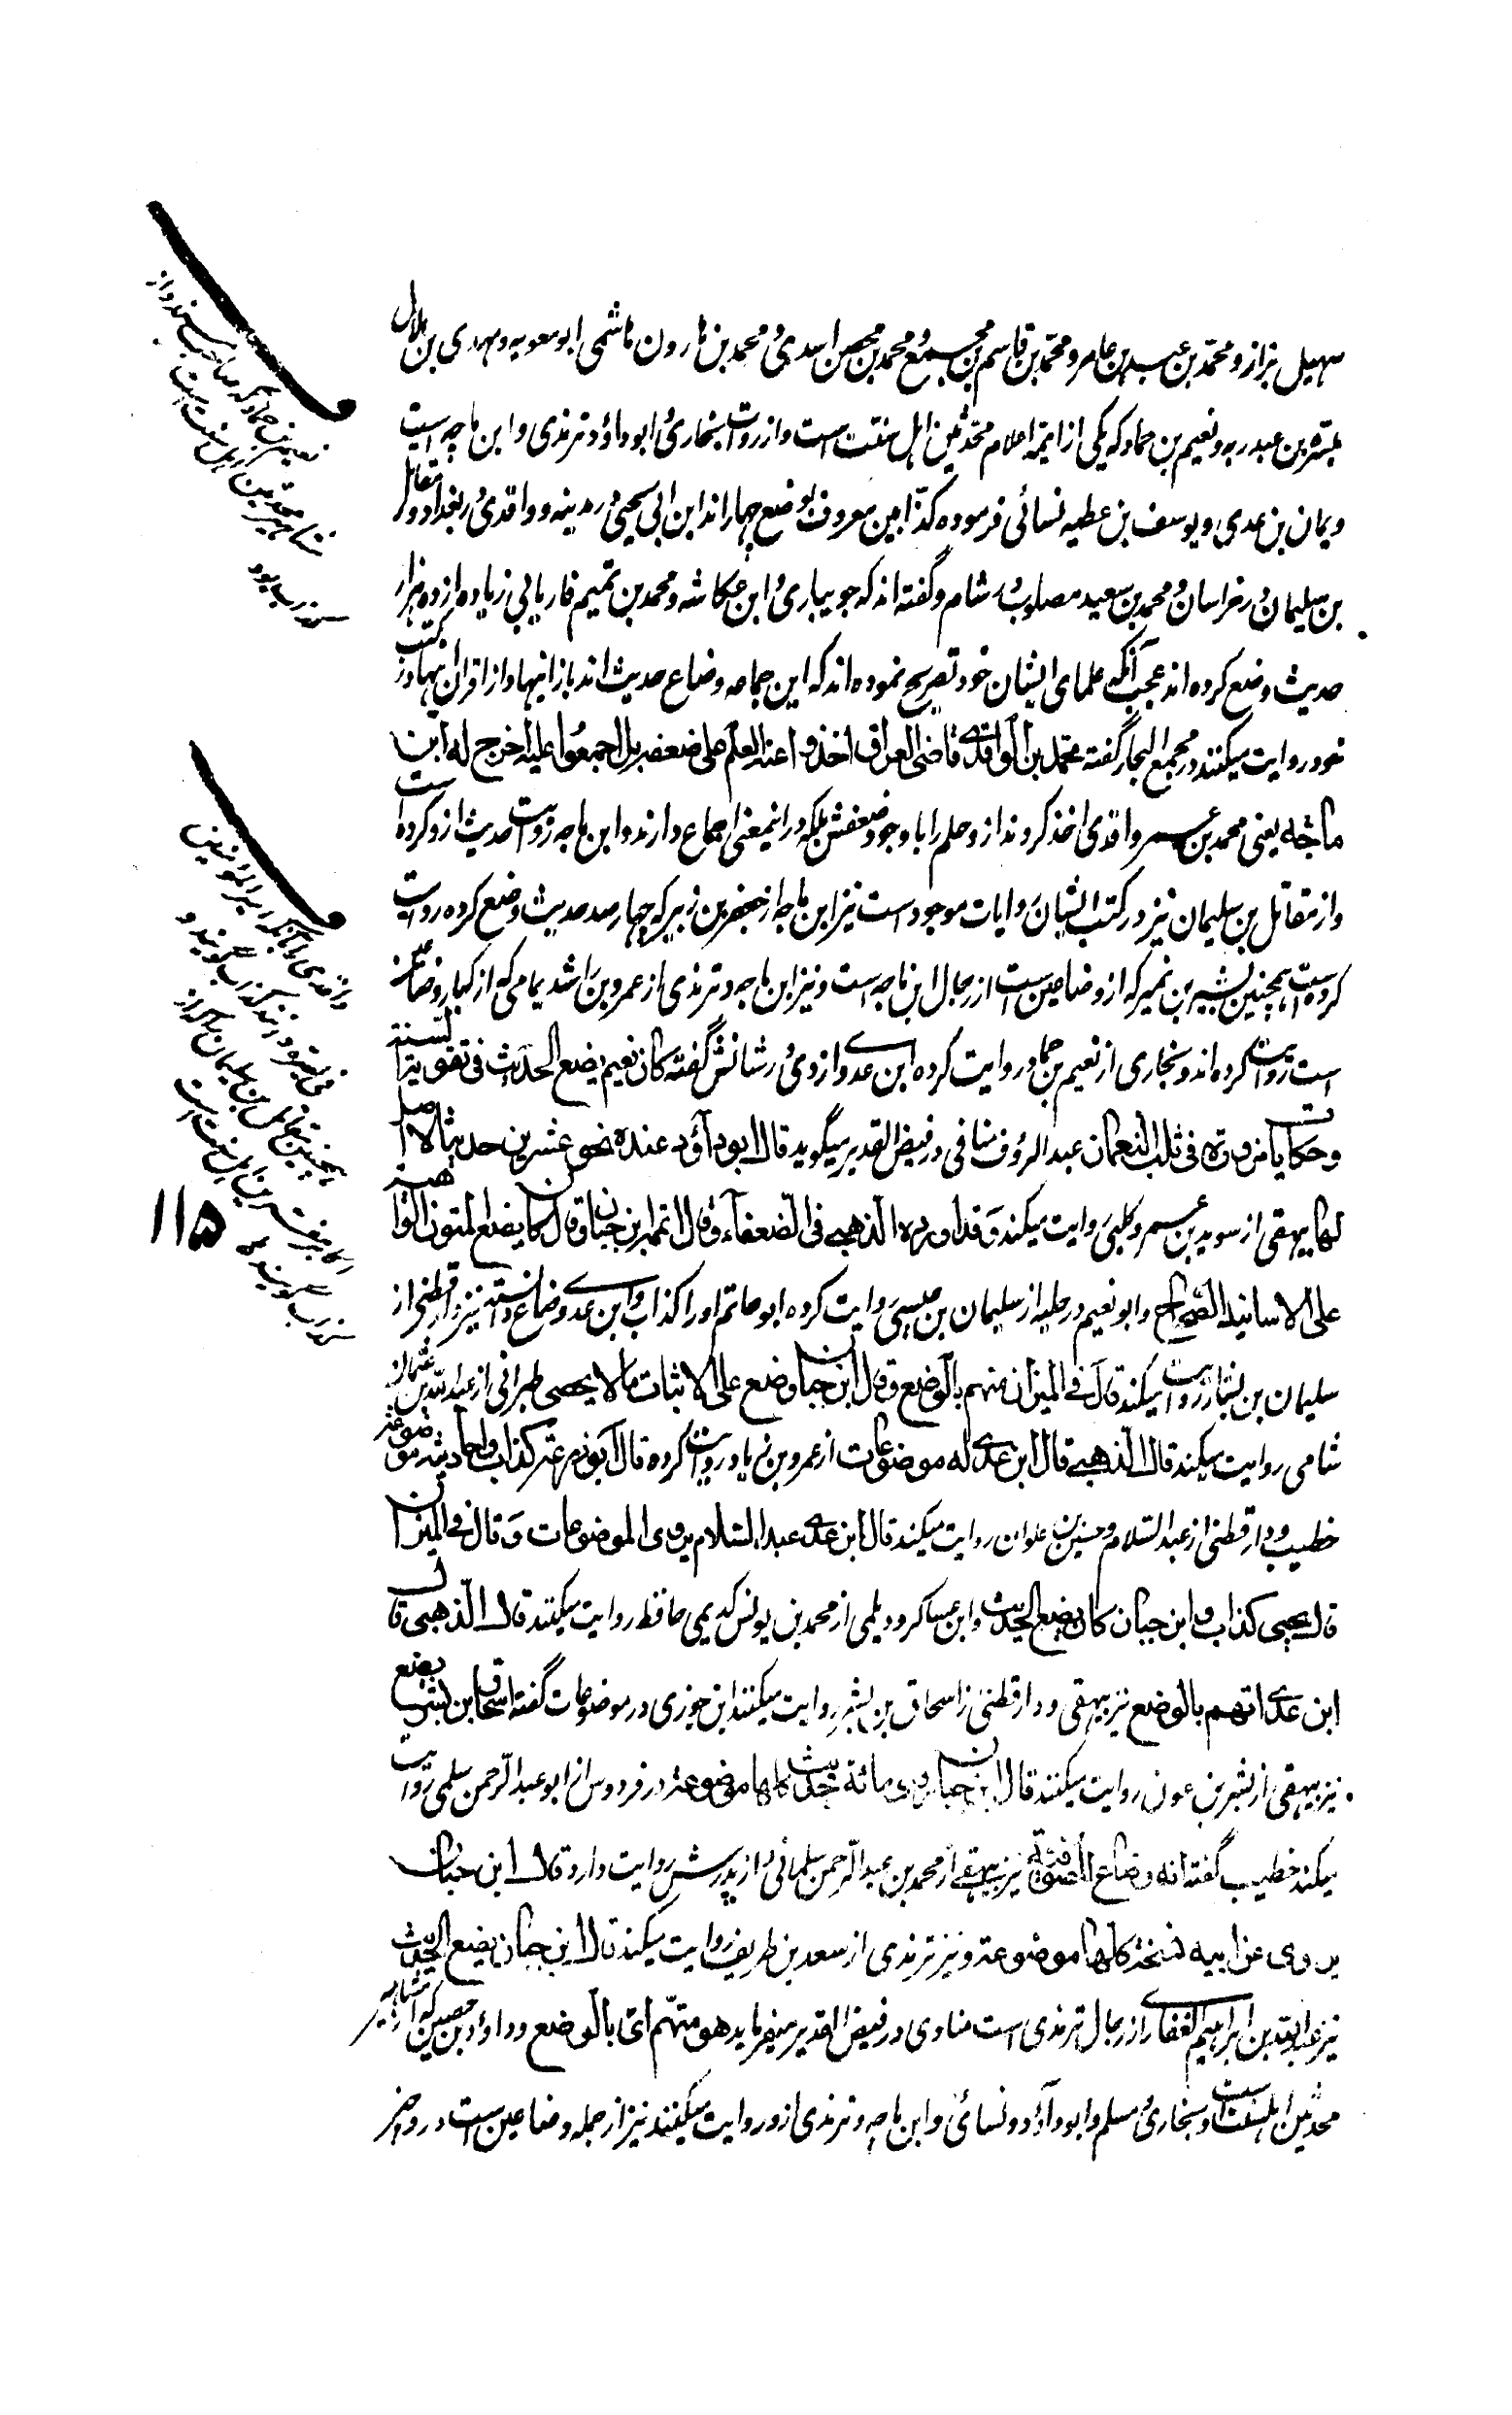 سهیل بزاز و محمّد بن عبید بن عامر و محمّد بن قاسم بن مجمع و محمد بن محصن اسدی و محمد بن هارون هاشمی ابو معویه و مهدی بن هلال
مبشر بن عبد ربه و نعیم بن حماد که یکی از ائمه اعلام محدثین اهل سنّت است و از روات بخاری و ابو داؤد و ترمذی و ابن ماجه است
و یمان بن عدی و یوسف بن عطیه نسائی فرموده کذّابین معروف بوضع چهار اند ابن ابی یحیی در مدینه و واقدی در بغداد و مقاتل
بن سلیمان در خراسان و محمد بن سعید مصلوب در شام و گفته اند که جویباری و ابن عکاشه و محمد بن تمیم فاریابی زیاده از ده هزار
حدیث وضع کرده اند عجب آنکه علمای ایشان خود تصریح نموده اند که این جماعه وضاع حدیث اند باز از اینها و از اقران اینها در کتب
خود روایت میکنند در مجمع البحار گفته محمد بن الواقدی قاضی العراق اخذوا عنه العلم علی ضعفه بل اجمعوا علیه اخرج له ابن
ماجه یعنی محمد بن عمر واقدی اخذ کردند از و علم را با وجود ضعفش بلکه در اینمعنی اجماع دارند و ابن ماجه روایت حدیث از و کرده است
و از مقاتل بن سلیمان نیز در کتب ایشان روایات موجود است نیز ابن ماجه از جعفر بن زبیر که چهار صد حدیث وضع کرده روایت
کرده است همچنین بشیر بن نمیر که از وضاعین ست از رجال ابن ماجه است و نیز ابن ماجه و ترمذی از عمرو بن راشد یمامی که از کبار وضاعین
است روایت کرده اند و بخاری از نعیم بن حماد روایت کرده ابن عدی و ازدی در شانش گفته کان نعیم یضع الحدیث فی تقویة السنة
و حکایات مزورة فی ثلب النعمان عبد الرؤف مناوی در فیض القدیر میگوید قال ابو داؤد عنده نحو عشرین حدیثا لا اصل
لها بیهقی از سوید بن عمرو کلبی روایت میکند و قد اورده الذهبی فی الضعفاء و قال اتهمه ابن حبان و قال کان یضع المتون الواهیة
علی الاسانید الصحاح و ابو نعیم در حلیه از سلیمان بن عیسی روایت کرده ابو حاتم او را کذاب و ابن عدی وضاع دانسته نیز دارقطنی از
سلیمان بن بشار روایت میکند قال فی المیزان متهم بالوضع و قال ابن حبان وضع علی الاثبات ما لا یحصی طبرانی از عبد الله بن عثمان
شامی روایت میکند قال الذهبی قال ابن عدی له موضوعات از عمرو بن زیاد روایت کرده قال ابو زرعة کذاب و احادیثه موضوعة
خطیب و دارقطنی از عبد السلام و حسین بن علوان روایت میکند قال ابن عدی عبد السلام یروی الموضوعات و قال فی المیزان
قال یحیی کذاب و ابن حبان کان یضع الحدیث و ابن عساکر و دیلمی از محمد بن یونس کدیمی حافظ روایت میکنند قال الذهبی قال
ابن عدی اتهم بالوضع نیز بیهقی و دارقطنی از اسحاق بن بشر روایت میکنند ابن جوزی در موضوعات گفته اسحاق ابن بشر یضع
نیز بیهقی از بشر بن عون روایت میکنند قال ابن حبان روی مائة حدیث کلها موضوعة در فردوس از ابو عبد الرحمن سلمی روایت
میکند خطیب گفته انه وضاع الصوفیة نیز بیهقی از محمد بن عبد الرحمن سلمانی و از پدرش روایت دارد قال ابن حبان
یروی عن ابیه نسخة کلها موضوعة و نیز ترمذی از سعد بن طریف روایت میکند قال ابن حبان یضع الحدیث
نیز عبد الله بن ابراهیم الغفاری از رجال ترمذی است مناوی در فیض القدیر میفرماید هو متّهم ای بالوضع و داؤد بن حصین که از مشاهیر
محدثین اهلسنت است و بخاری و مسلم و ابو داؤد و نسائی و ابن ماجه و ترمذی از و روایت میکنند نیز از جمله وضاعین است در روض
نعیم بن حماد که صاحب سند و از
مشاهیر محدثین اهل سنت است
کذاب بود
واقدی را آنکه امیر المؤمنین
فی الحدیث کذاب گویند و
همچنین مقاتل بن سلیمان که از
اکابر مفسرین اهل سنت است
کذاب گویند
۱۱۵